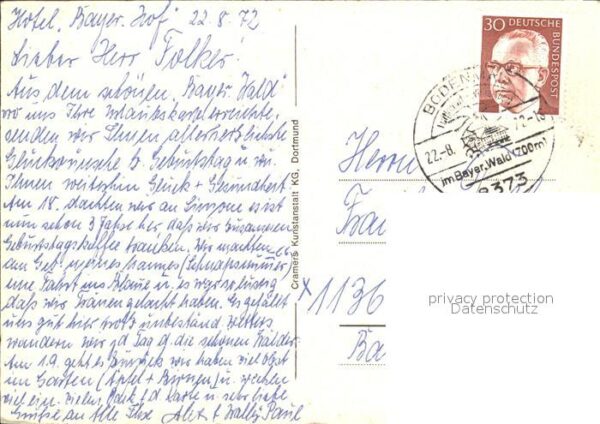 Hotel "Bayer. Hof" 22.8.72
Lieber Herr Folker!
Aus dem schönen "Bayer. Wald"
wo uns Ihre Urlaubskarte erreichte,
senden wir Ihnen allerherzlichste
Glückwünsche z. Geburtstag u. wü.
Ihnen weiterhin Glück + Gesundheit
Am 18. dachten wir an Sie, es ist
nun schon 3 Jahre her, daß wir zusammen
Geburtstagskaffee tranken. Wir machten
am Geb. meines Mannes (Schnapsnummer)
eine Fahrt ins Blaue u. es war so lustig
daß wir Tränen gelacht haben. Es gefällt
uns gut hier trotz unbeständ. Wetters
wandern wir jd Tag d. die schönen Wälder.
Am 1.9. geht es zurück, wir haben viel Obst
im Garten (Äpfel + Birnen) u.
viel ein. Vielen Dank f. d. Karte u. sehr liebe
Grüße an Alle Ihre Alex + Wally Paul
Cramers Kunstanstalt KG, Dortmund
30 DEUTSCHE
BUNDESPOST
BODENMAIS
22.-8.
im Bayer. Wald (700m)
8373
Herrn
1136
Ba
privacy protection
Datenschutz